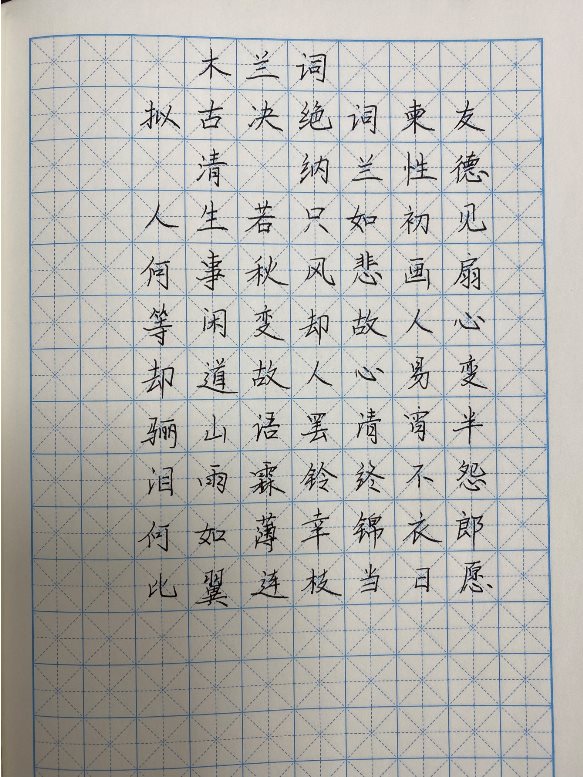 木兰词
拟古决绝词柬友
清 纳兰性德
人生若只如初见
何事秋风悲画扇
等闲变却故人心
却道故人心易变
骊山语罢清宵半
泪雨霖铃终不怨
何如薄幸锦衣郎
比翼连枝当日愿